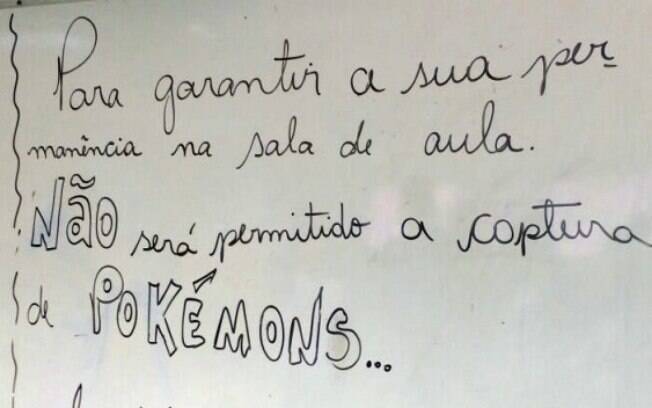 Para garantir a sua per-
manência na sala de aula.
Não será permitido a captura
de POKÉMONS...